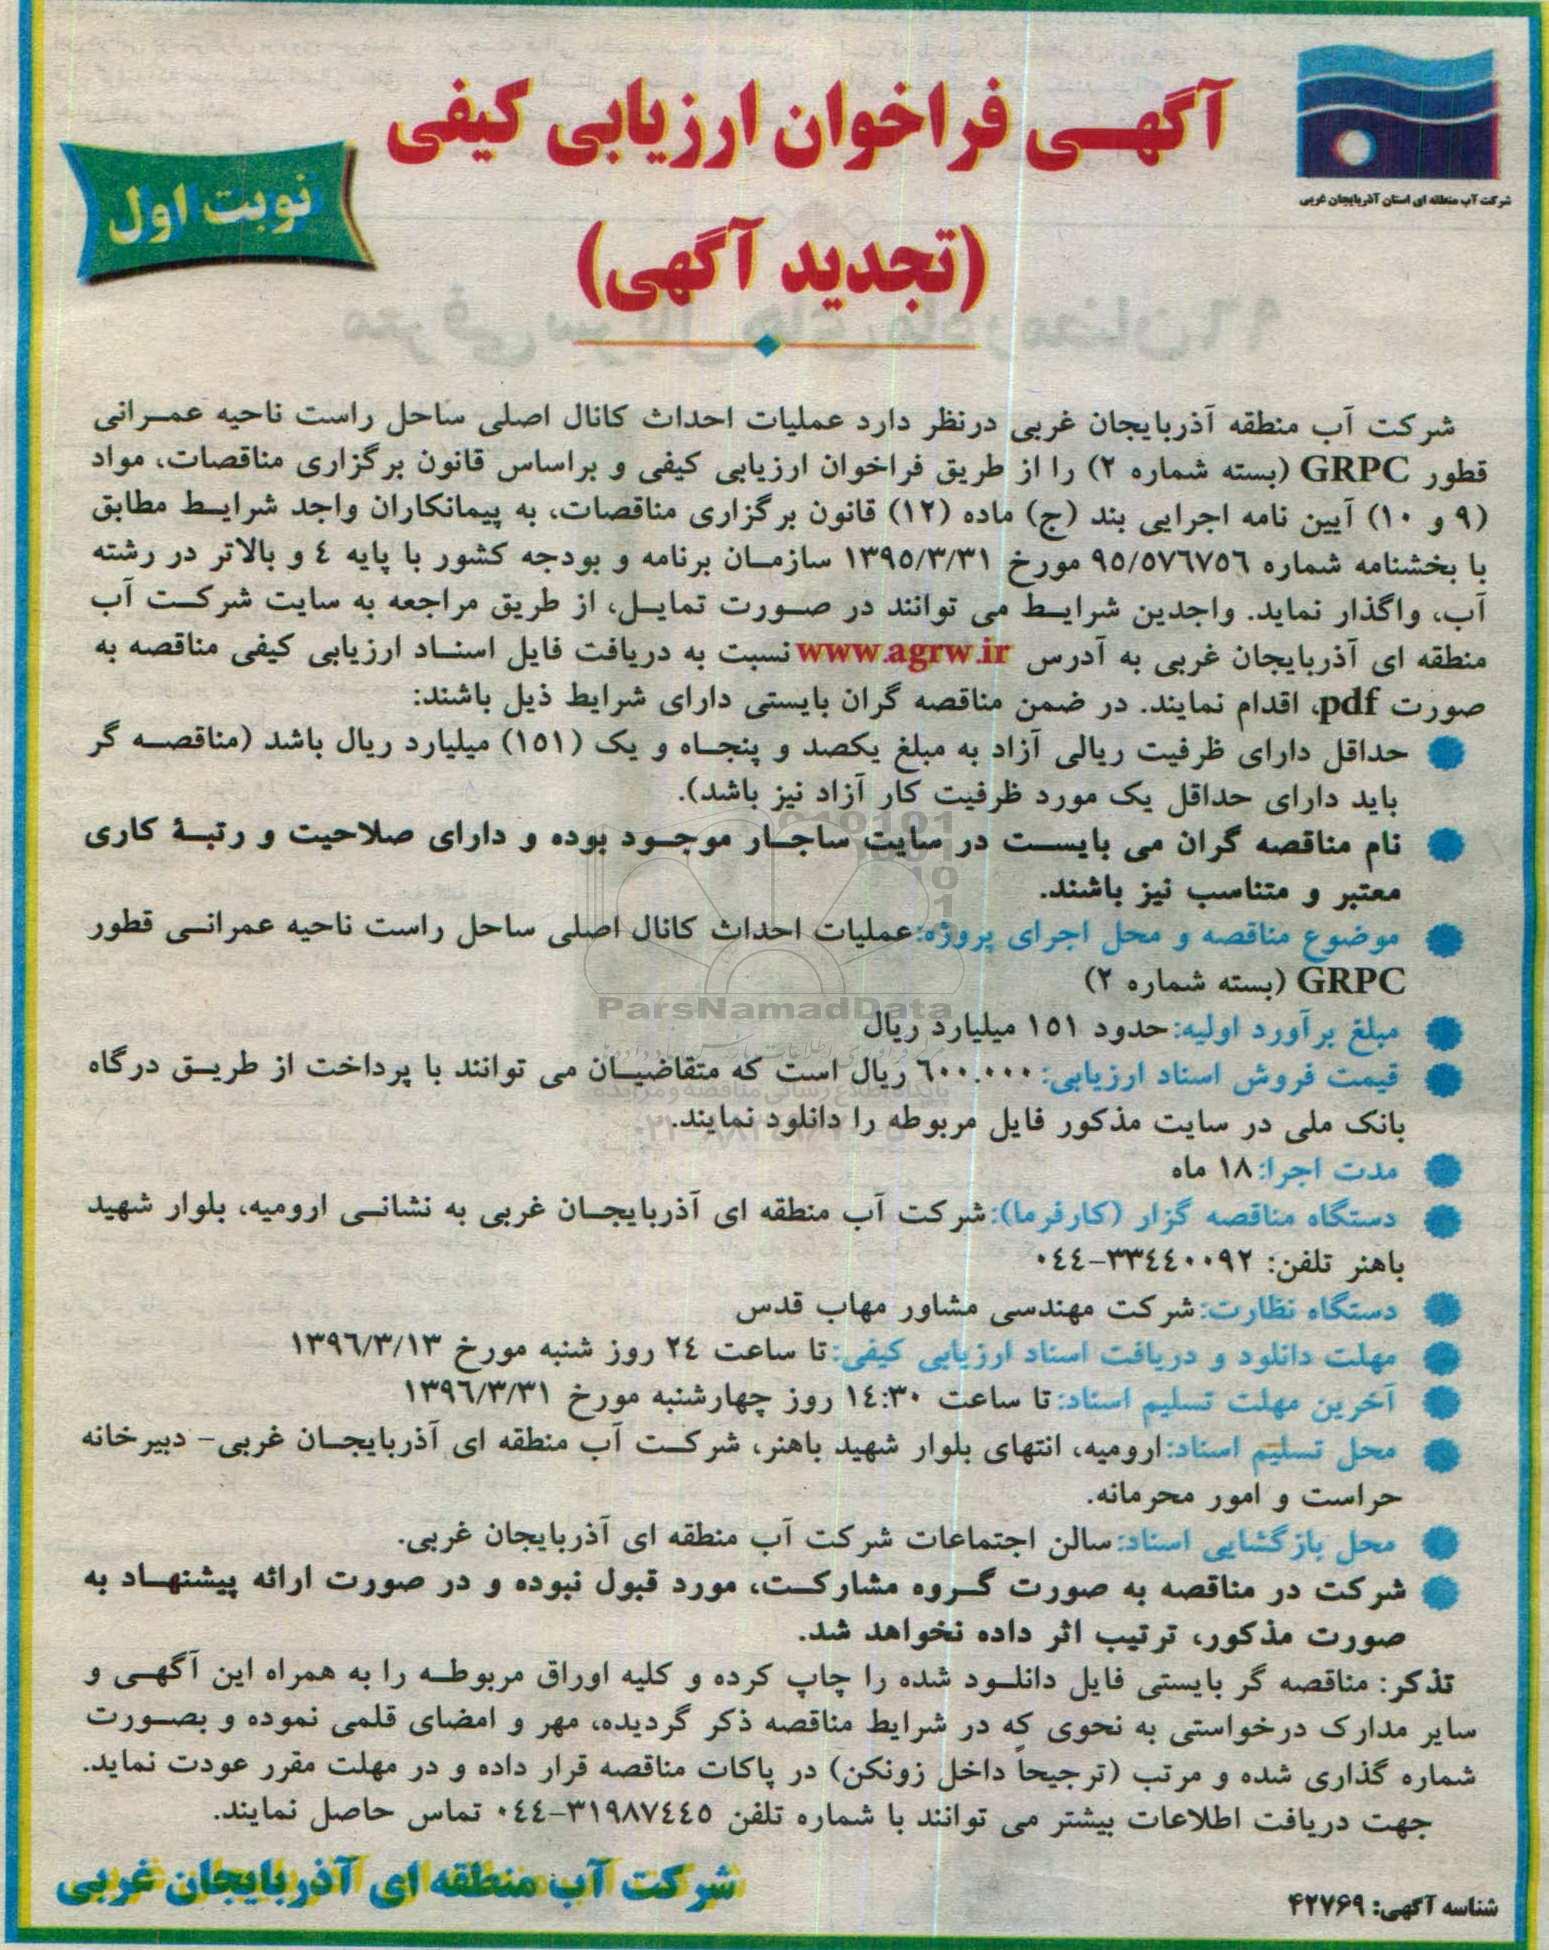 شرکت آب منطقه ای استان آذربایجان غربی
آگهی فراخوان ارزیابی کیفی
نوبت اول
(تجدید آگهی)
شرکت آب منطقه آذربایجان غربی درنظر دارد عملیات احداث کانال اصلی ساحل راست ناحیه عمرانی
قطور GRPC (بسته شماره ۲) را از طریق فراخوان ارزیابی کیفی و براساس قانون برگزاری مناقصات، مواد
(۹ و ۱۰) آیین نامه اجرایی بند (ج) ماده (۱۲) قانون برگزاری مناقصات، به پیمانکاران واجد شرایط مطابق
با بخشنامه شماره ۹۵/۵۷۶۷۵۶ مورخ ۱۳۹۵/۳/۳۱ سازمان برنامه و بودجه کشور با پایه ۴ و بالاتر در رشته
آب، واگذار نماید. واجدین شرایط می توانند در صورت تمایل، از طریق مراجعه به سایت شرکت آب
منطقه ای آذربایجان غربی به آدرس www.agrw.ir نسبت به دریافت فایل اسناد ارزیابی کیفی مناقصه به
صورت pdf، اقدام نمایند. در ضمن مناقصه گران بایستی دارای شرایط ذیل باشند:
حداقل دارای ظرفیت ریالی آزاد به مبلغ یکصد و پنجاه و یک (۱۵۱) میلیارد ریال باشد (مناقصه گر
باید دارای حداقل یک مورد ظرفیت کار آزاد نیز باشد).
نام مناقصه گران می بایست در سایت ساجار موجود بوده و دارای صلاحیت و رتبهٔ کاری
معتبر و متناسب نیز باشند.
موضوع مناقصه و محل اجرای پروژه: عملیات احداث کانال اصلی ساحل راست ناحیه عمرانی قطور
GRPC (بسته شماره ۲)
ParsNamadData
مبلغ برآورد اولیه: حدود ۱۵۱ میلیارد ریال
قیمت فروش اسناد ارزیابی: ۶۰۰.۰۰۰ ریال است که متقاضیان می توانند با پرداخت از طریق درگاه
بانک ملی در سایت مذکور فایل مربوطه را دانلود نمایند.
مدت اجرا: ۱۸ ماه
دستگاه مناقصه گزار (کارفرما): شرکت آب منطقه ای آذربایجان غربی به نشانی ارومیه، بلوار شهید
باهنر تلفن: ۳۳۴۴۰۰۹۲-۰۴۴
دستگاه نظارت: شرکت مهندسی مشاور مهاب قدس
مهلت دانلود و دریافت اسناد ارزیابی کیفی: تا ساعت ۲۴ روز شنبه مورخ ۱۳۹۶/۳/۱۳
آخرین مهلت تسلیم اسناد: تا ساعت ۱۴:۳۰ روز چهارشنبه مورخ ۱۳۹۶/۳/۳۱
محل تسلیم اسناد: ارومیه، انتهای بلوار شهید باهنر، شرکت آب منطقه ای آذربایجان غربی- دبیرخانه
حراست و امور محرمانه.
محل بازگشایی اسناد: سالن اجتماعات شرکت آب منطقه ای آذربایجان غربی.
شرکت در مناقصه به صورت گروه مشارکت، مورد قبول نبوده و در صورت ارائه پیشنهاد به
صورت مذکور، ترتیب اثر داده نخواهد شد.
تذکر: مناقصه گر بایستی فایل دانلود شده را چاپ کرده و کلیه اوراق مربوطه را به همراه این آگهی و
سایر مدارک درخواستی به نحوی که در شرایط مناقصه ذکر گردیده، مهر و امضای قلمی نموده و بصورت
شماره گذاری شده و مرتب (ترجیحاً داخل زونکن) در پاکات مناقصه قرار داده و در مهلت مقرر عودت نماید.
جهت دریافت اطلاعات بیشتر می توانند با شماره تلفن ۳۱۹۸۷۴۴۵-۰۴۴ تماس حاصل نمایند.
شناسه آگهی: ۴۲۷۶۹
شرکت آب منطقه ای آذربایجان غربی